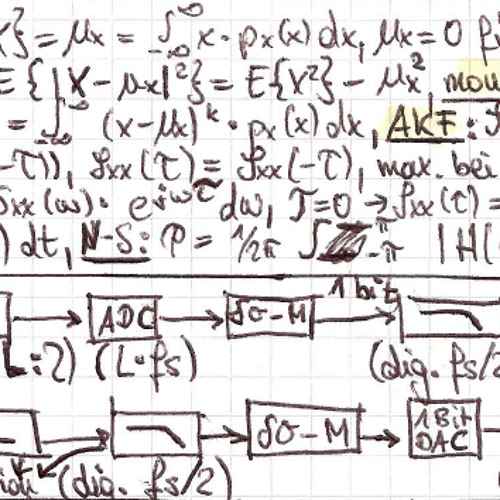 x} = μx = ∫-∞^∞ x · px(x) dx, μx = 0
E{|X - μx|²} = E{X²} - μx²,
= ∫-∞^∞ (x-μx)^k · px(x) dx, AKF:
-τ)), ρxx(τ) = ρxx(-τ), max. bei
Sxx(ω) · e^jωτ dω, τ=0 → ρxx(τ) =
) dt, N-S: P = 1/2π ∫-π^π |H(
1 bit
ADC δσ-M
L:2) (L·fs) (dig. fs/2
δσ-M 1 Bit DAC
(dig. fs/2)